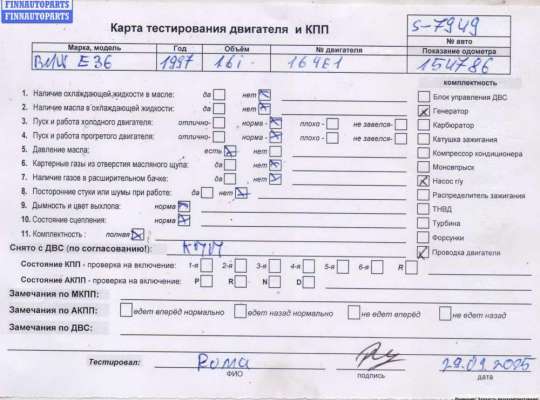 FINNAUTOPARTS
FINNAUTOPARTS
Карта тестирования двигателя и КПП
S-7949
№ авто
Марка, модель Год Объём № двигателя Показание одометра
BMW E36 1997 1.6i 164E1 154786
комплектность
1. Наличие охлаждающей жидкости в масле: да нет
2. Наличие масла в охлаждающей жидкости: да нет
3. Пуск и работа холодного двигателя: отлично- норма - плохо - не завелся-
4. Пуск и работа прогретого двигателя: отлично- норма - плохо - не завелся-
5. Давление масла: есть нет
6. Картерные газы из отверстия масляного щупа: да нет
7. Наличие газов в расширительном бачке: да нет
8. Посторонние стуки или шумы при работе: да нет
9. Дымность и цвет выхлопа: норма
10. Состояние сцепления: норма
11. Комплектность : полная
Блок управления ДВС
Генератор
Карбюратор
Катушка зажигания
Компрессор кондиционера
Моновпрыск
Насос г/у
Распределитель зажигания
ТНВД
Турбина
Форсунки
Проводка двигателя
Снято с ДВС (по согласованию!):
Состояние КПП - проверка на включение: 1-я 2-я 3-я 4-я 5-я 6-я R
Состояние АКПП - проверка на включение: P R N D
Замечания по МКПП:
Замечания по АКПП: едет вперёд нормально едет назад нормально не едет вперёд не едет назад
Замечания по ДВС:
Тестировал: Roma 29.09.2025
ФИО подпись дата